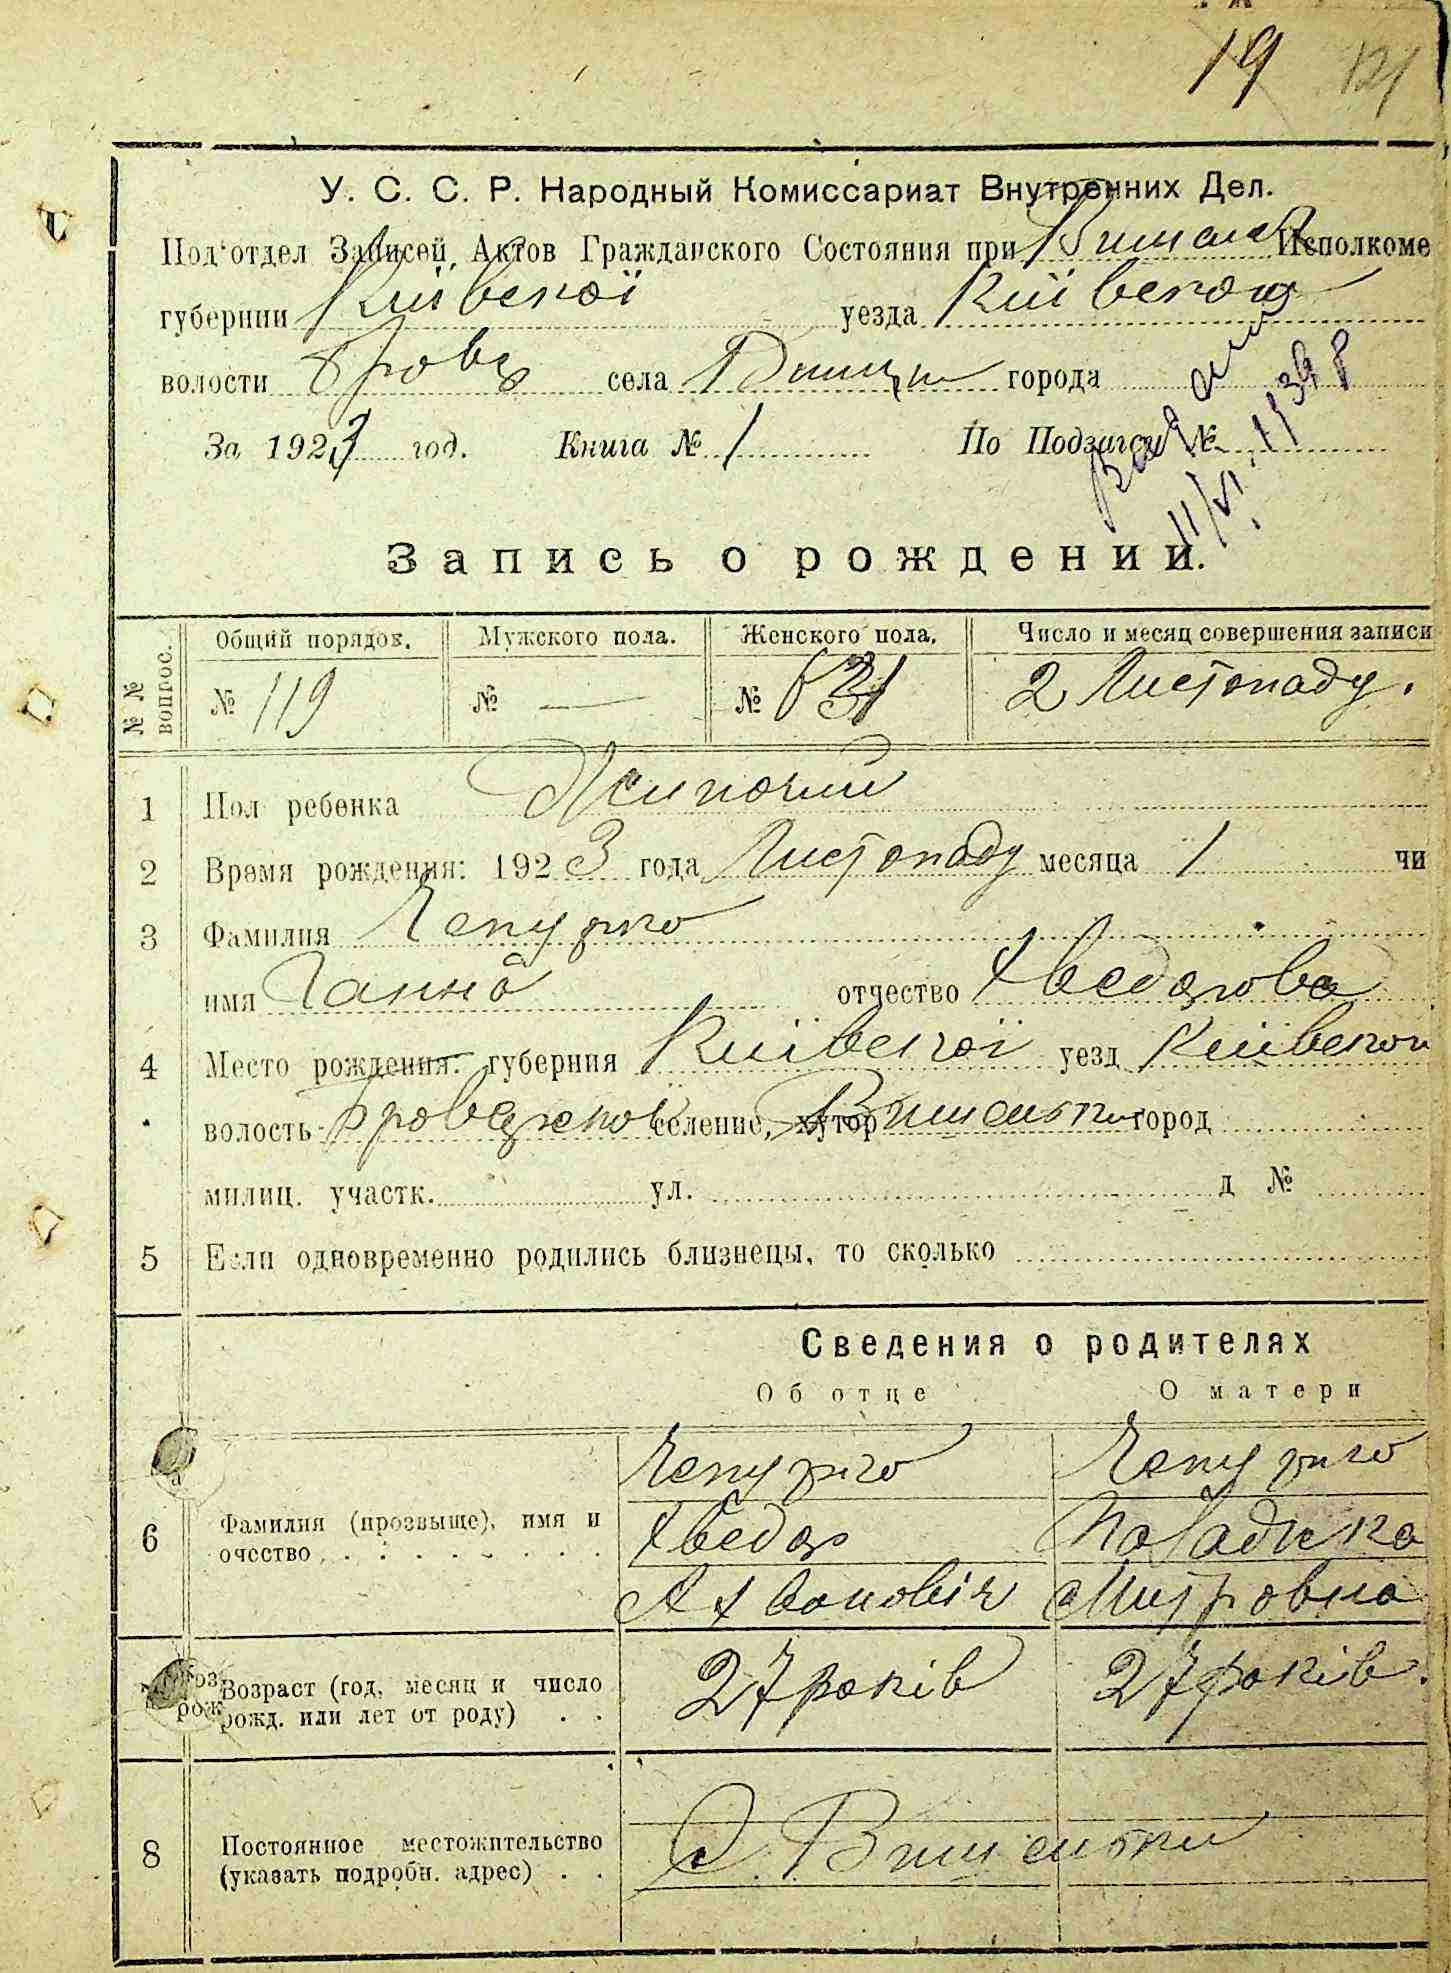 19 121
У. С. С. Р. Народный Комиссариат Внутренних Дел.
Под'отдел Записей Актов Гражданского Состояния при Исполкоме
губернии Київскої уезда Київского
волости Бров села города
За 1923 год. Книга № 1 По Подзагсу №
11/VI. 1939 р
Запись о рождении.
№ № вопрос. Общий порядов. Мужского пола. Женского пола. Число и месяц совершения записи
№ 119 № — № 2 Листопаду.
1 Пол ребенка Жиночий
2 Время рождения: 1923 года Листопаду месяца 1 чи
3 Фамилия Чепурко
имя Ганна отчество Хведорова
4 Место рождения: губерния Київскої уезд Київского
волость Броварської селение, хутор Вишеньки город
милиц. участк. ул. д №
5 Если одновременно родились близнецы, то сколько
Сведения о родителях
Об отце О матери
Чепурко Чепурко
6 Фамилия (прозвыще), имя и Хведор
очество Митровна
Возраст (год, месяц и число 27 років 27 років.
рожд. или лет от роду)
8 Постоянное местожительство С. Вишеньки
(указать подробн. адрес)